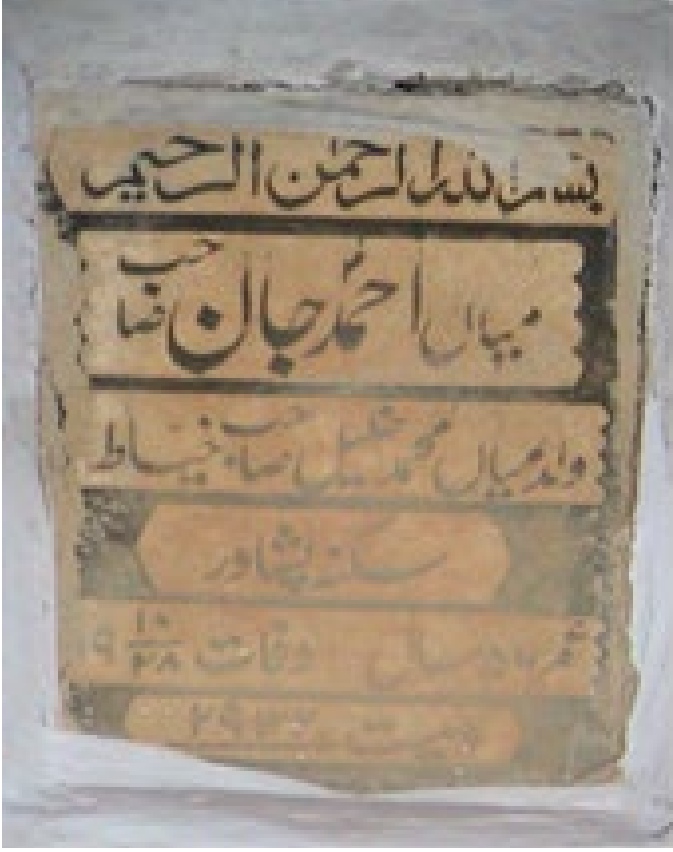 بسم الله الرحمن الرحيم
میاں احمد جان صاحب
والد میاں محمد خلیل صاحب خیاط
سکنہ پشاور
عمر سال وفات
وصیت